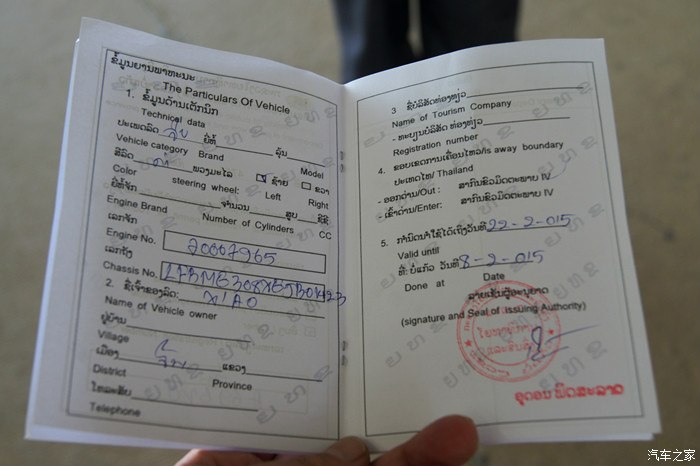 ຂໍ້ມູນຍານພາຫະນະ
The Particulars Of Vehicle
1. ຂໍ້ມູນດ້ານເຕັກນິກ
Technical data
ປະເພດລົດ ຍີ່ຫໍ້ ລຸ້ນ
Vehicle category Brand Model
ສີລົດ ພວງມະໄລ ຊ້າຍ ຂວາ
Color steering wheel: Left Right
ຍີ່ຫໍ້ຈັກ ຈຳນວນ ສູບ ຊີຊີ
Engine Brand Number of Cylinders CC
ເລກຈັກ
Engine No. 20007965
ເລກຖັງ
Chassis No.
2. ຊື່ເຈົ້າຂອງລົດ: XIAO
Name of Vehicle owner
ຢູ່ບ້ານ
Village
ເມືອງ ແຂວງ
District Province
ໂທລະສັບ
Telephone
3 ຊື່ບໍລິສັດທ່ອງທ່ຽວ
Name of Tourism Company
- ທະບຽນບໍລິສັດ ທ່ອງທ່ຽວ
Registration number
4. ຂອບເຂດການເຄື່ອນໄຫວ/is away boundary
ປະເທດໄທ/ Thailand
- ອອກດ່ານ/Out : ສາກົນຂົວມິດຕະພາບ IV
- ເຂົ້າດ່ານ/Enter: ສາກົນຂົວມິດຕະພາບ IV
5. ກຳນົດນຳໃຊ້ໄດ້ເຖິງວັນທີ 22-2-015
Valid until
ທີ່: ບໍ່ແກ້ວ ວັນທີ 8-2-015
Done at Date
ລາຍເຊັນຜູ້ອະນຸຍາດ
(signature and Seal of issuing Authority)
ອຸດອນ ພິດສະລາດ
汽车之家